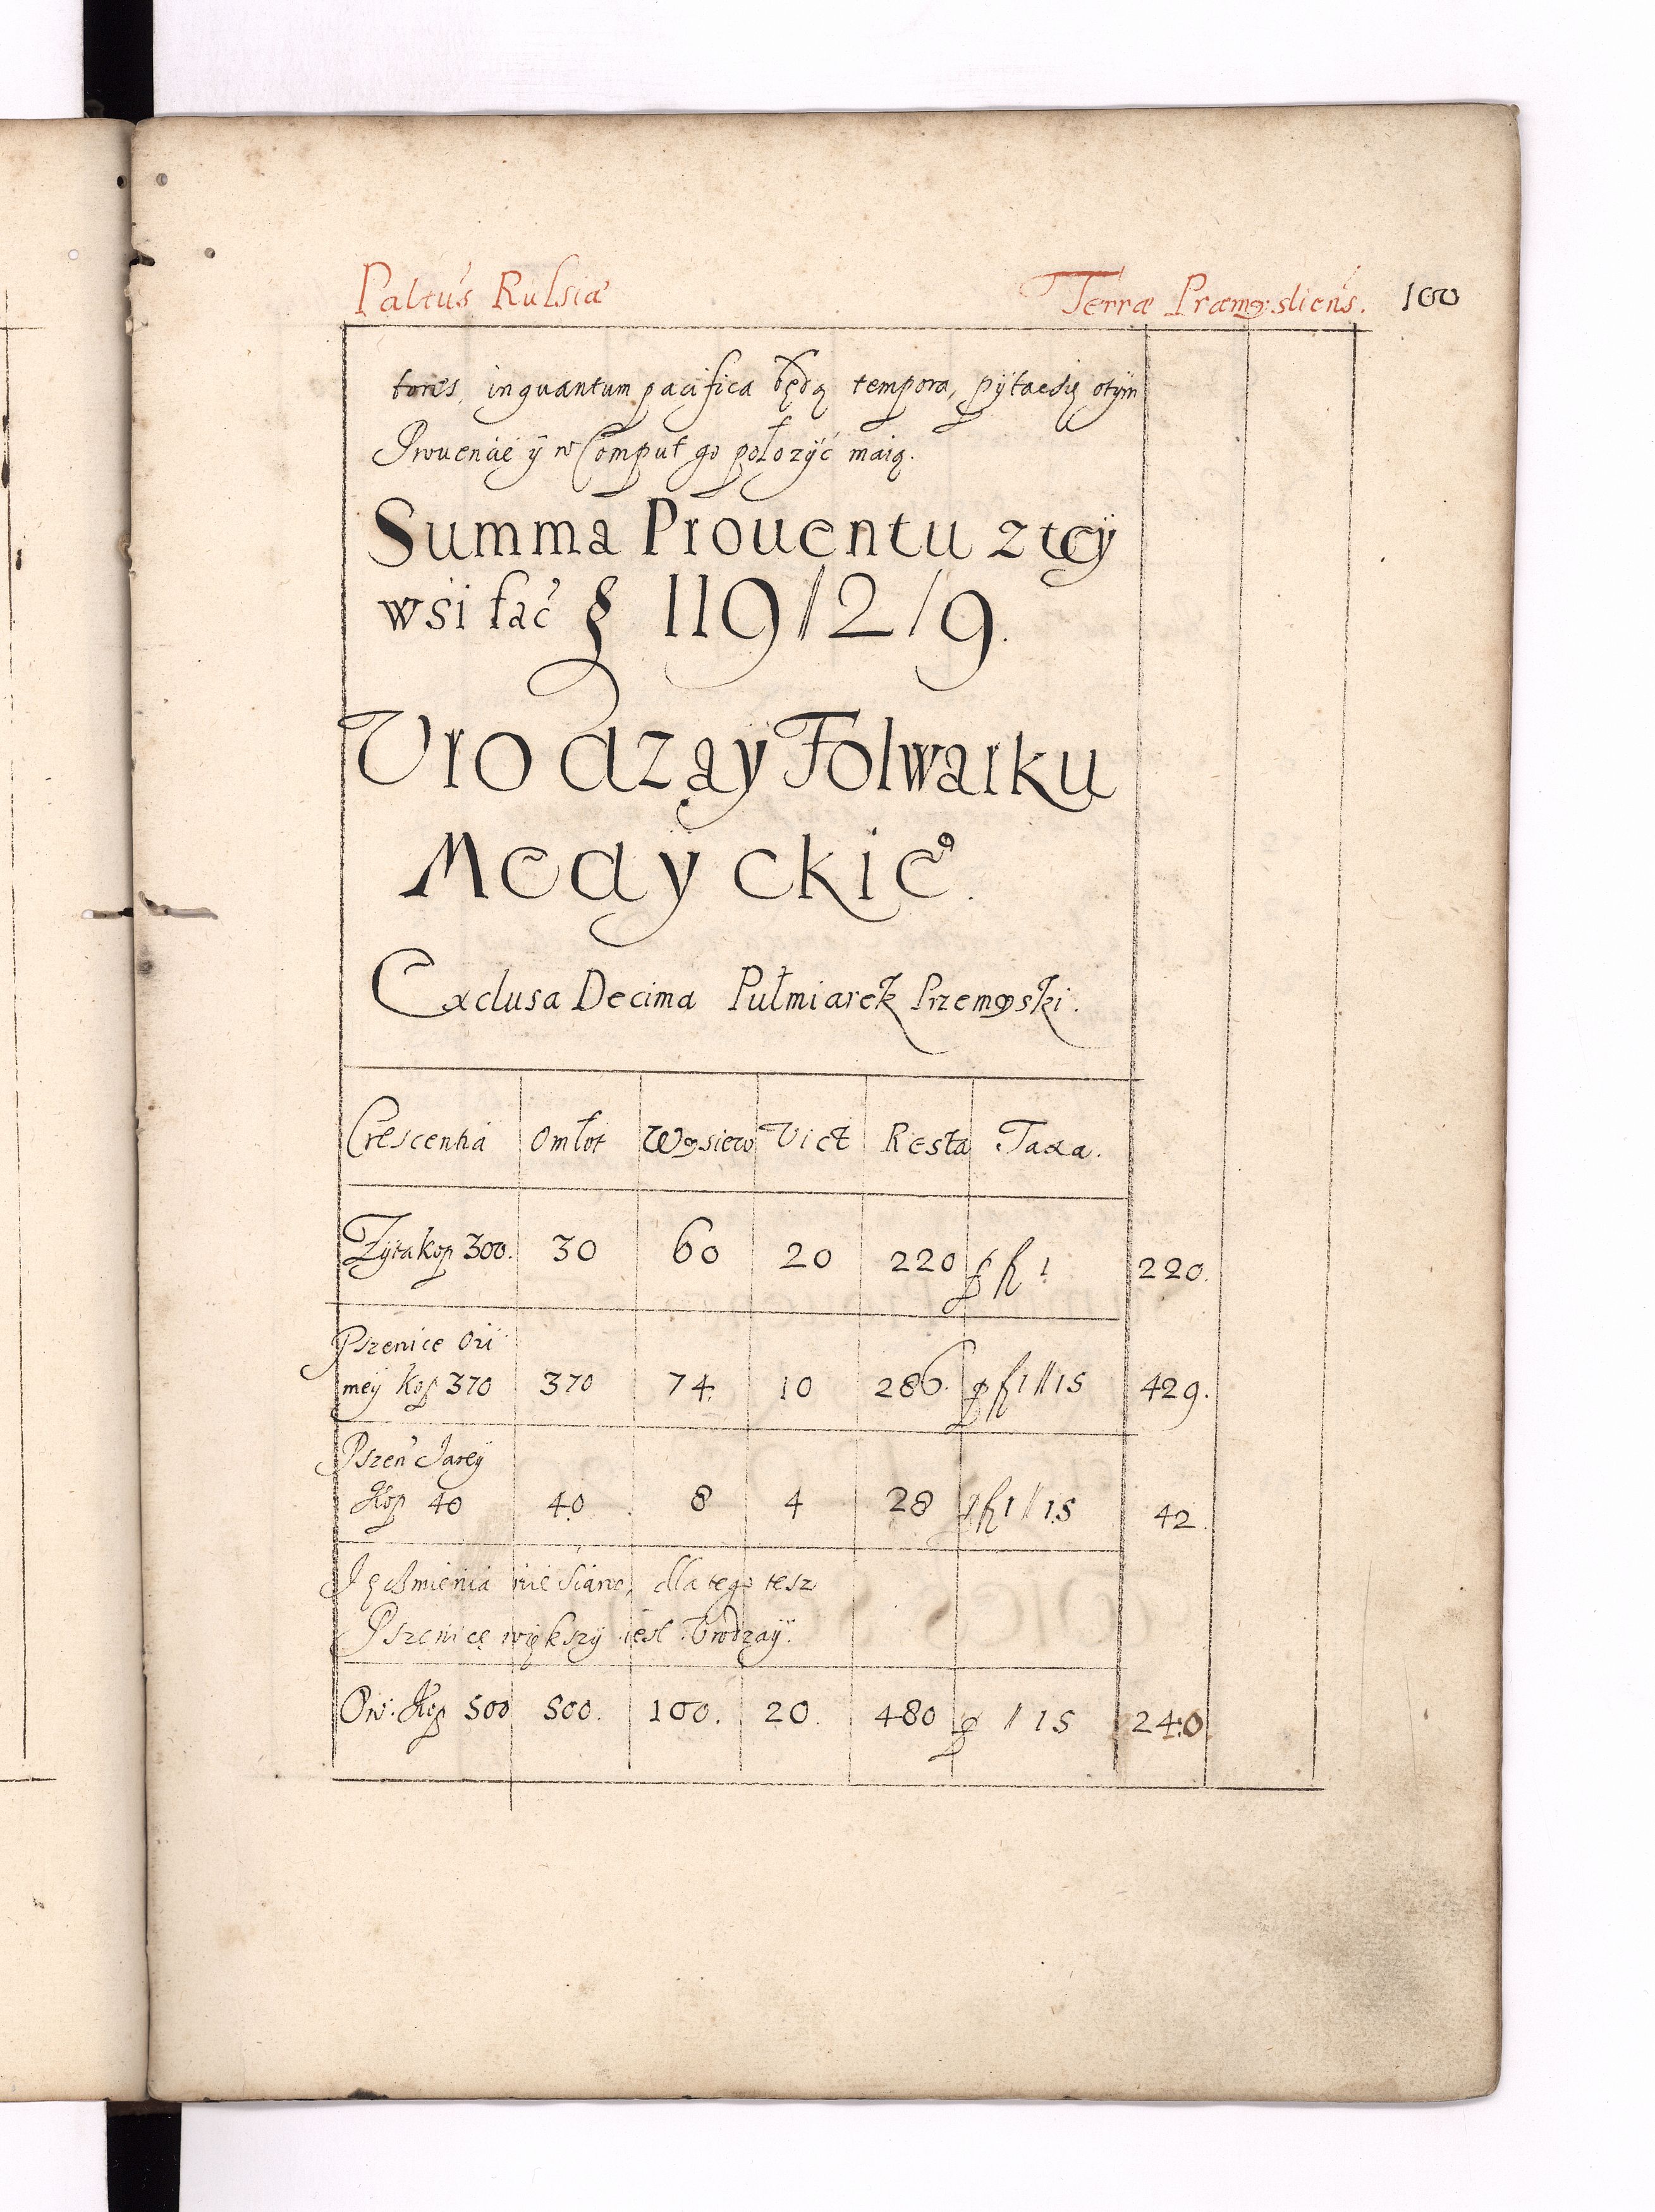 Paltus Russiæ Terræ Præmysliens. 100
tores, inquantum pacifica będą tempora, pÿtacsię otÿm
Prouencie ÿ w Comput go położÿć maią.
Summa Prouentu z teÿ
wsi fać § 119/2/9.
Vrodzaÿ Folwarku
Medyckieº.
Exclusa Decima Pułmiarek Przemyski.
Crescentia Omłot Wysiew Vict Resta Taxa.
Zÿta kop 300. 30 60 20 220 p fl 1 220.
Pszenice Ozi
meÿ Kop 370 370 74. 10 286. p fl 1 // 15 429.
Pszeń Jareÿ
Kop 40 40 8 4 28 p fl 1 // 15 42.
Jęcżmienia nie siano, dla tego tesz
Pszenicę większÿ iest Vrodzaÿ.
Ow. Kop 500 500. 100. 20. 480 p // 15 240.